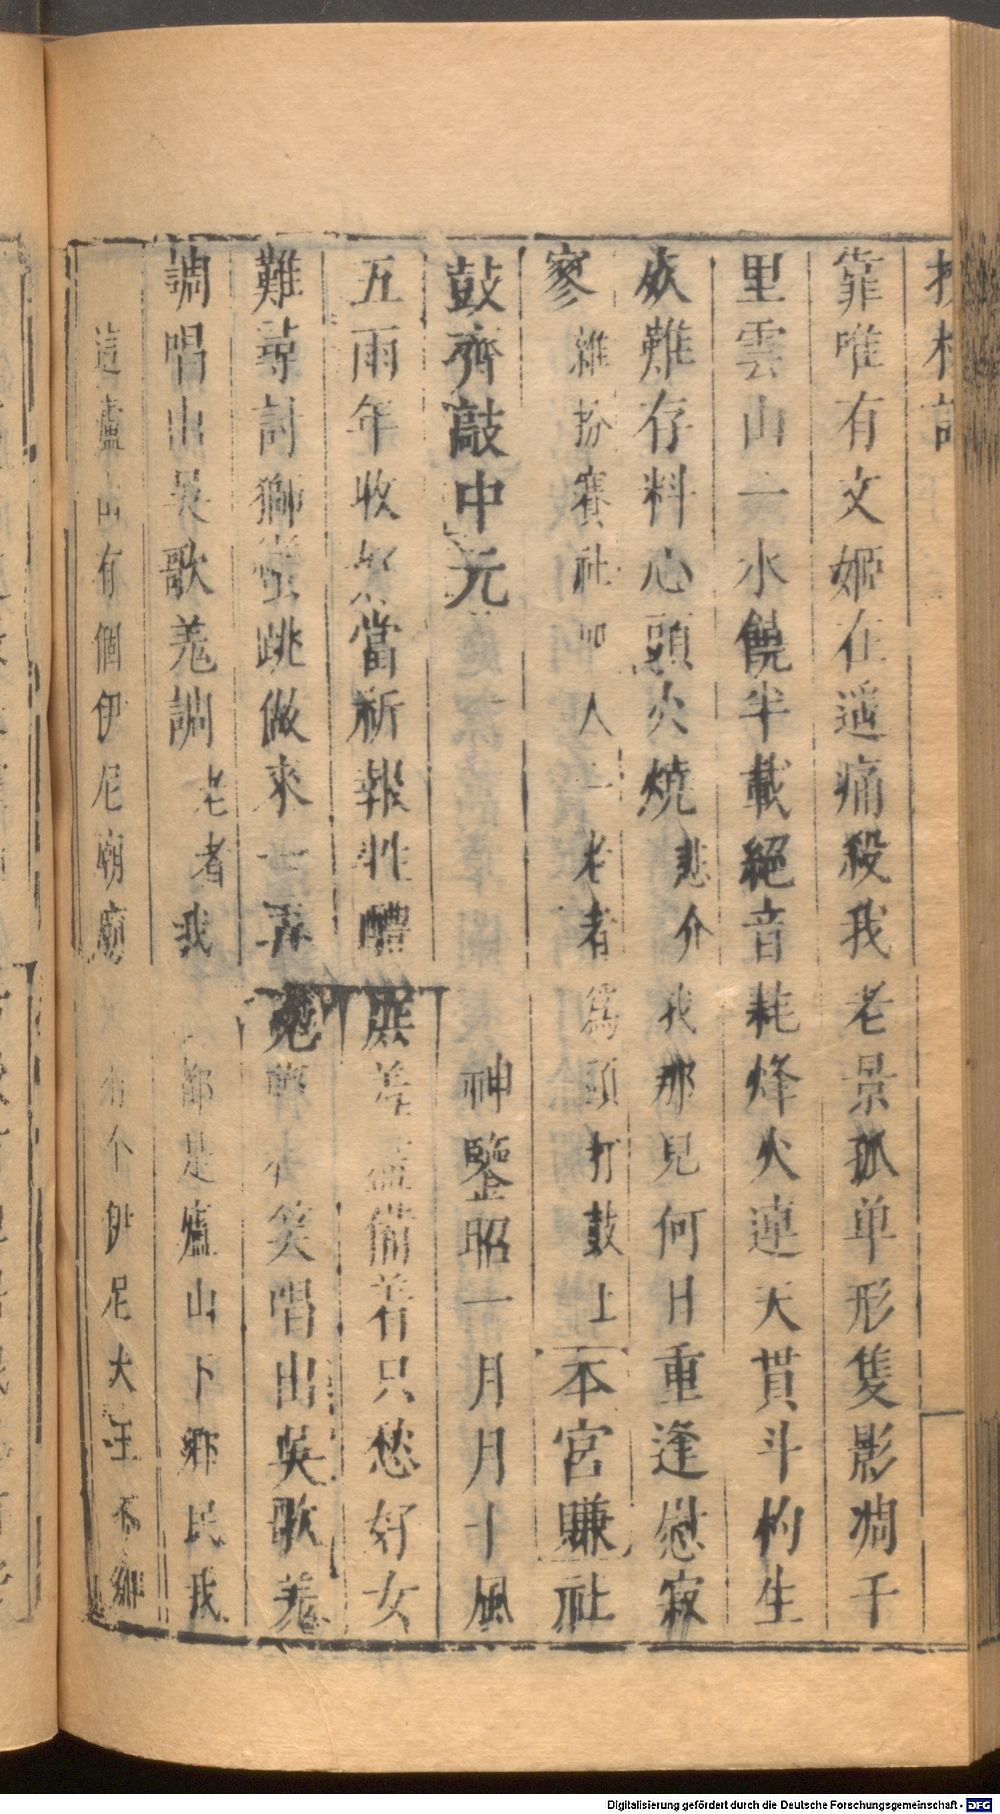 靠唯有文姬在遥痛殺我老景孤单形隻影凋千
里雲山一水饒半載絕音耗烽火連天貫斗杓生
死難存料心頭火燒悲介我那見何日重逢慰寂
寥雜扮賽社四人一老者爲頭打鼓上本宮賺社
鼓齊敲中元神鑒昭一月月十風
五雨年收當祈報牲醴羞備着只愁好女
難尋討獅蠻跳做來弄笑唱出吳歌羗
調唱出吳歌羗調老者我都是廬山下鄉民我
這廬山有個伊尼廟廟有个伊尼大王不
Digitalisierung gefördert durch die Deutsche Forschungsgemeinschaft - DFG